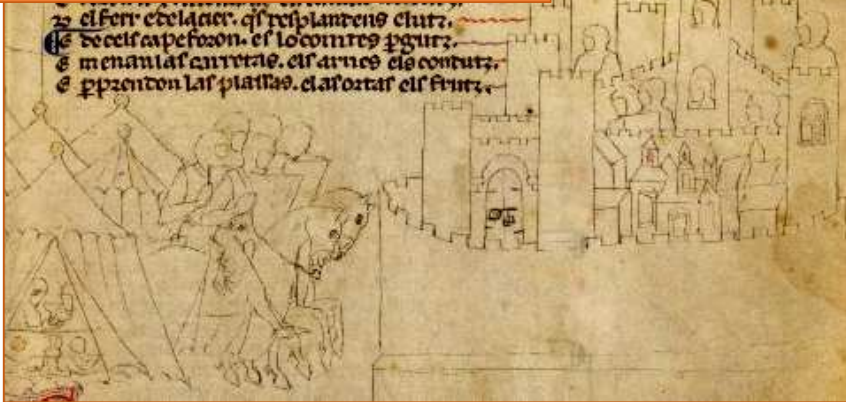 el ferr e delacier. qs resplandens e lutz.
E de cels cap e foron. es lo comtes pgutz.
E menan las carretas. els arnes els condutz.
E pprendon las plassas. e las ortas els frutz.